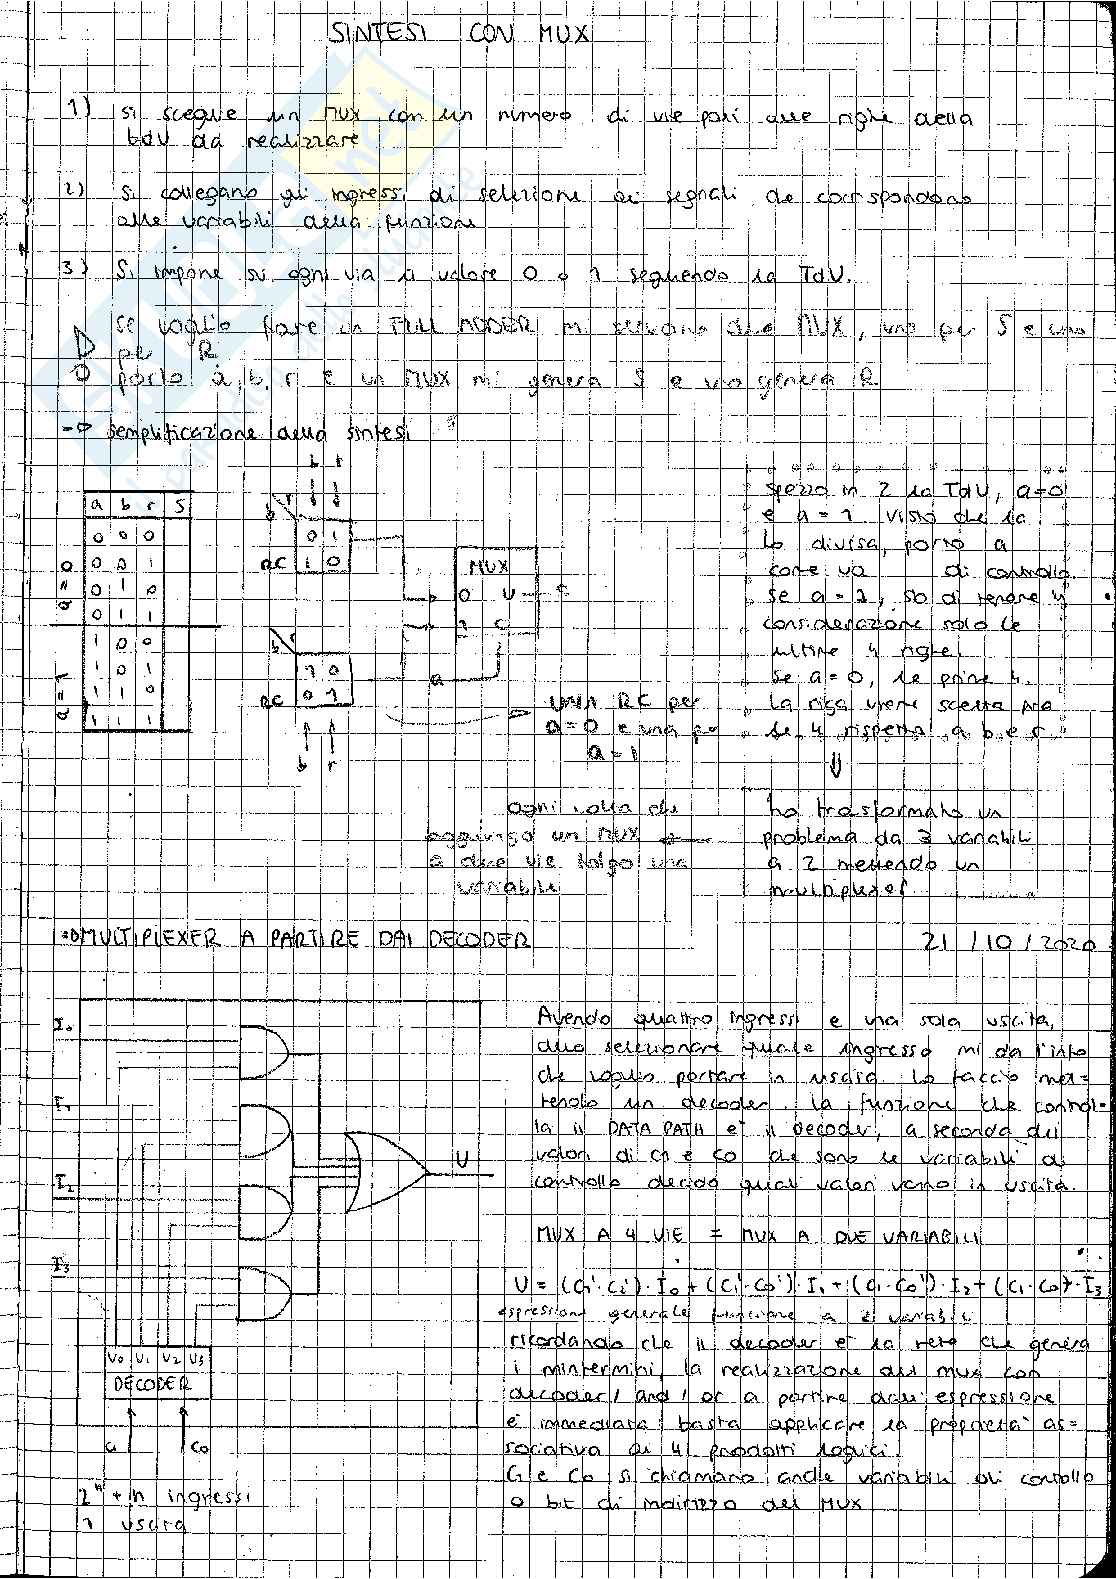 SINTESI CON MUX
1) si sceglie un MUX con un numero di vie pari alle righe della
tdV da realizzare
2) Si collegano gli ingressi di selezione ai segnali che corrispondono
alle variabili della funzione
3) Si impone su ogni via il valore 0 o 1 seguendo la TdV.
se voglio fare un FULL ADDER mi servono due MUX, uno per S e uno
per R
porto a, b, r e un MUX mi genera S e uno genera R
-> semplificazione della sintesi
b r
a b r S
0 0 0
0 0 1
0 1 0
0 1 1
1 0 0
1 0 1
1 1 0
1 1 1
a=0
a=1
b r
0 1
RC 1 0
b r
1 0
RC 0 1
b r
MUX
0 U
1 C
a
UNA RC per
a=0 e una per
a=1
spezzo in 2 la TdV, a=0
e a=1 visto che la
ho divisa, porto a
come va di controllo.
se a=1, so di tenere in
considerazione solo le
ultime 4 righe.
Se a=0, le prime 4.
La riga viene scelta fra
le 4 rispetto a b e r.
ho trasformato un
problema da 3 variabili
a 2 mettendo un
multiplexer.
ogni volta che
aggiungo un MUX
a due vie tolgo una
variabile
=> MULTIPLEXER A PARTIRE DAI DECODER
21/10/2020
I0
I1
I2
I3
U
V0 V1 V2 V3
DECODER
C1 C0
2^n + n ingressi
1 uscita
Avendo quattro ingressi e una sola uscita,
devo selezionare quale ingresso mi da l'info
che voglio portare in uscita. Lo faccio met=
tendo un decoder. la funzione che control=
la il DATA PATH e' il decoder, a seconda dei
valori di C1 e C0 che sono le variabili di
controllo decido quali valori vanno in uscita.
MUX A 4 VIE = MUX A DUE VARIABILI
U = (C1'·C0')·I0 + (C1'·C0')·I1 + (C1·C0')·I2 + (C1·C0)·I3
espressione generale funzione a 2 variabili
ricordando che il decoder e' la rete che genera
i mintermini, la realizzazione del mux con
decoder, and, or a partire dall'espressione
e' immediata basta applicare la proprieta' as=
sociativa ai 4 prodotti logici.
C1 e C0 si chiamano anche variabili di controllo
o bit di indirizzo del MUX